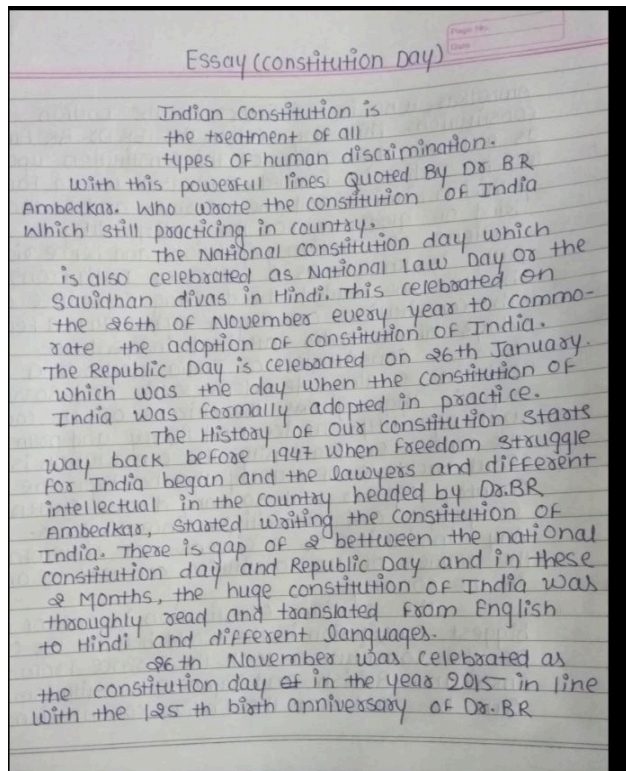 Page No.
Date
Essay (Constitution Day)
Indian Constitution is
the treatment of all
types of human discrimination.
With this powerful lines Quoted By Dr BR
Ambedkar. Who wrote the constitution of India
Which still practicing in country.
The National constitution day which
is also celebrated as National law Day or the
Savidhan divas in Hindi. This celebrated on
the 26th of November every year to commo-
rate the adoption of constitution of India.
The Republic Day is celebrated on 26th January.
which was the day when the constitution of
India was formally adopted in practice.
The History of our constitution starts
way back before 1947 when freedom struggle
for India began and the lawyers and different
intellectual in the country headed by Dr.BR
Ambedkar, started writing the constitution of
India. There is gap of 2 bettween the national
constitution day and Republic Day and in these
2 Months, the huge constitution of India was
throughly read and translated from English
to Hindi and different languages.
26th November was celebrated as
the constitution day of in the year 2015 in line
with the 125 th birth anniversary of Dr. BR